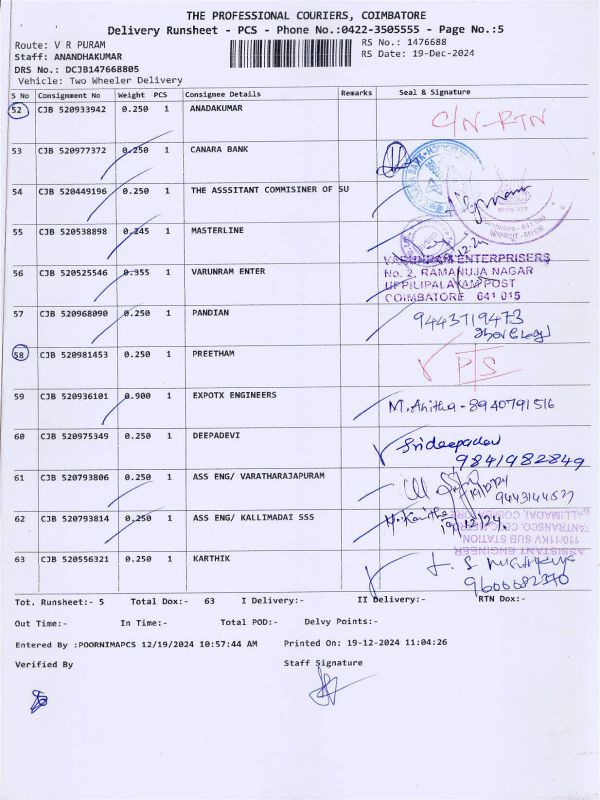 THE PROFESSIONAL COURIERS, COIMBATORE
Delivery Runsheet - PCS - Phone No.:0422-3505555 - Page No.:5
Route: V R PURAM
RS No.: 1476688
Staff: ANANDHAKUMAR
RS Date: 19-Dec-2024
DRS No.: DCJB147668805
Vehicle: Two Wheeler Delivery
S No Consignment No Weight PCS Consignee Details Remarks Seal & Signature
52 CJB 520933942 0.250 1 ANADAKUMAR C/N-RTN
53 CJB 520977372 0.250 1 CANARA BANK
54 CJB 520449196 0.250 1 THE ASSSITANT COMMISINER OF SU
55 CJB 520538898 0.245 1 MASTERLINE
56 CJB 520525546 0.355 1 VARUNRAM ENTER
VARUNRAM ENTERPRISERS
No. 2, RAMANUJA NAGAR
UPPILIPALAYAM POST
COIMBATORE 641 015
57 CJB 520968090 0.250 1 PANDIAN 9443719473
58 CJB 520981453 0.250 1 PREETHAM P/S
59 CJB 520936101 0.900 1 EXPOTX ENGINEERS M.Anitha - 8940791516
60 CJB 520975349 0.250 1 DEEPADEVI Srideepadevi
9841982849
61 CJB 520793806 0.250 1 ASS ENG/ VARATHARAJAPURAM
62 CJB 520793814 0.250 1 ASS ENG/ KALLIMADAI SSS
19/12/24
110/11KV SUB STATION
ASSISTANT ENGINEER
63 CJB 520556321 0.250 1 KARTHIK
9600682370
Tot. Runsheet:- 5 Total Dox:- 63 I Delivery:- II Delivery:- RTN Dox:-
Out Time:- In Time:- Total POD:- Delvy Points:-
Entered By :POORNIMAPCS 12/19/2024 10:57:44 AM Printed On: 19-12-2024 11:04:26
Verified By Staff Signature